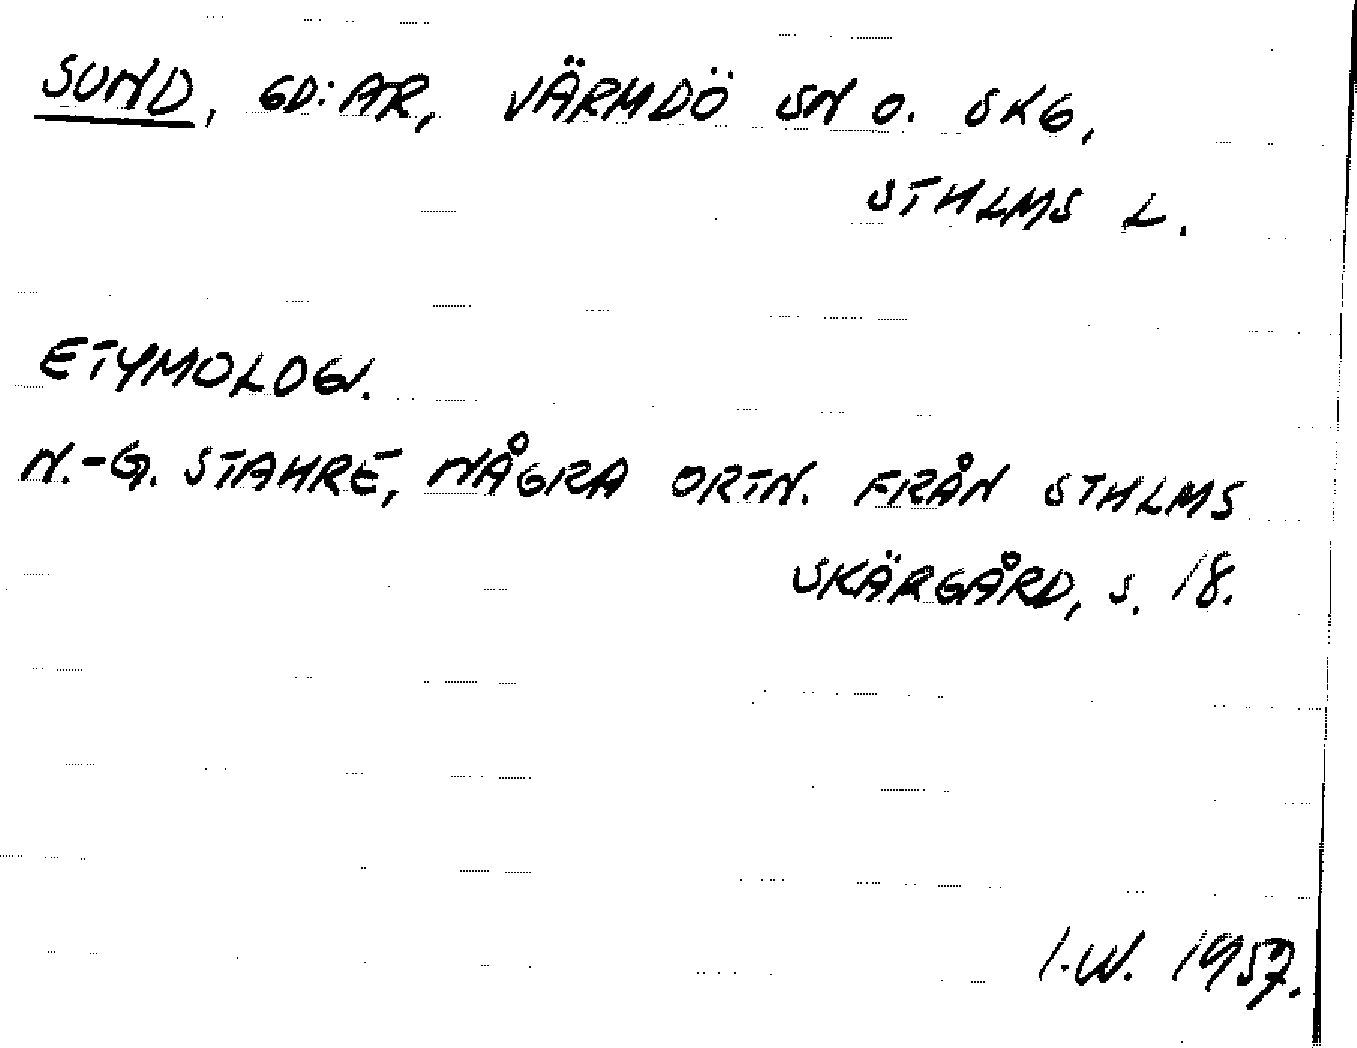 SUND, GD:AR, VÄRMDÖ SN O. SKG,
STHLMS L.
ETYMOLOGI.
N.-G. STAHRE, NÅGRA ORTN. FRÅN STHLMS
SKÄRGÅRD, S. 18.
I.W. 1957.